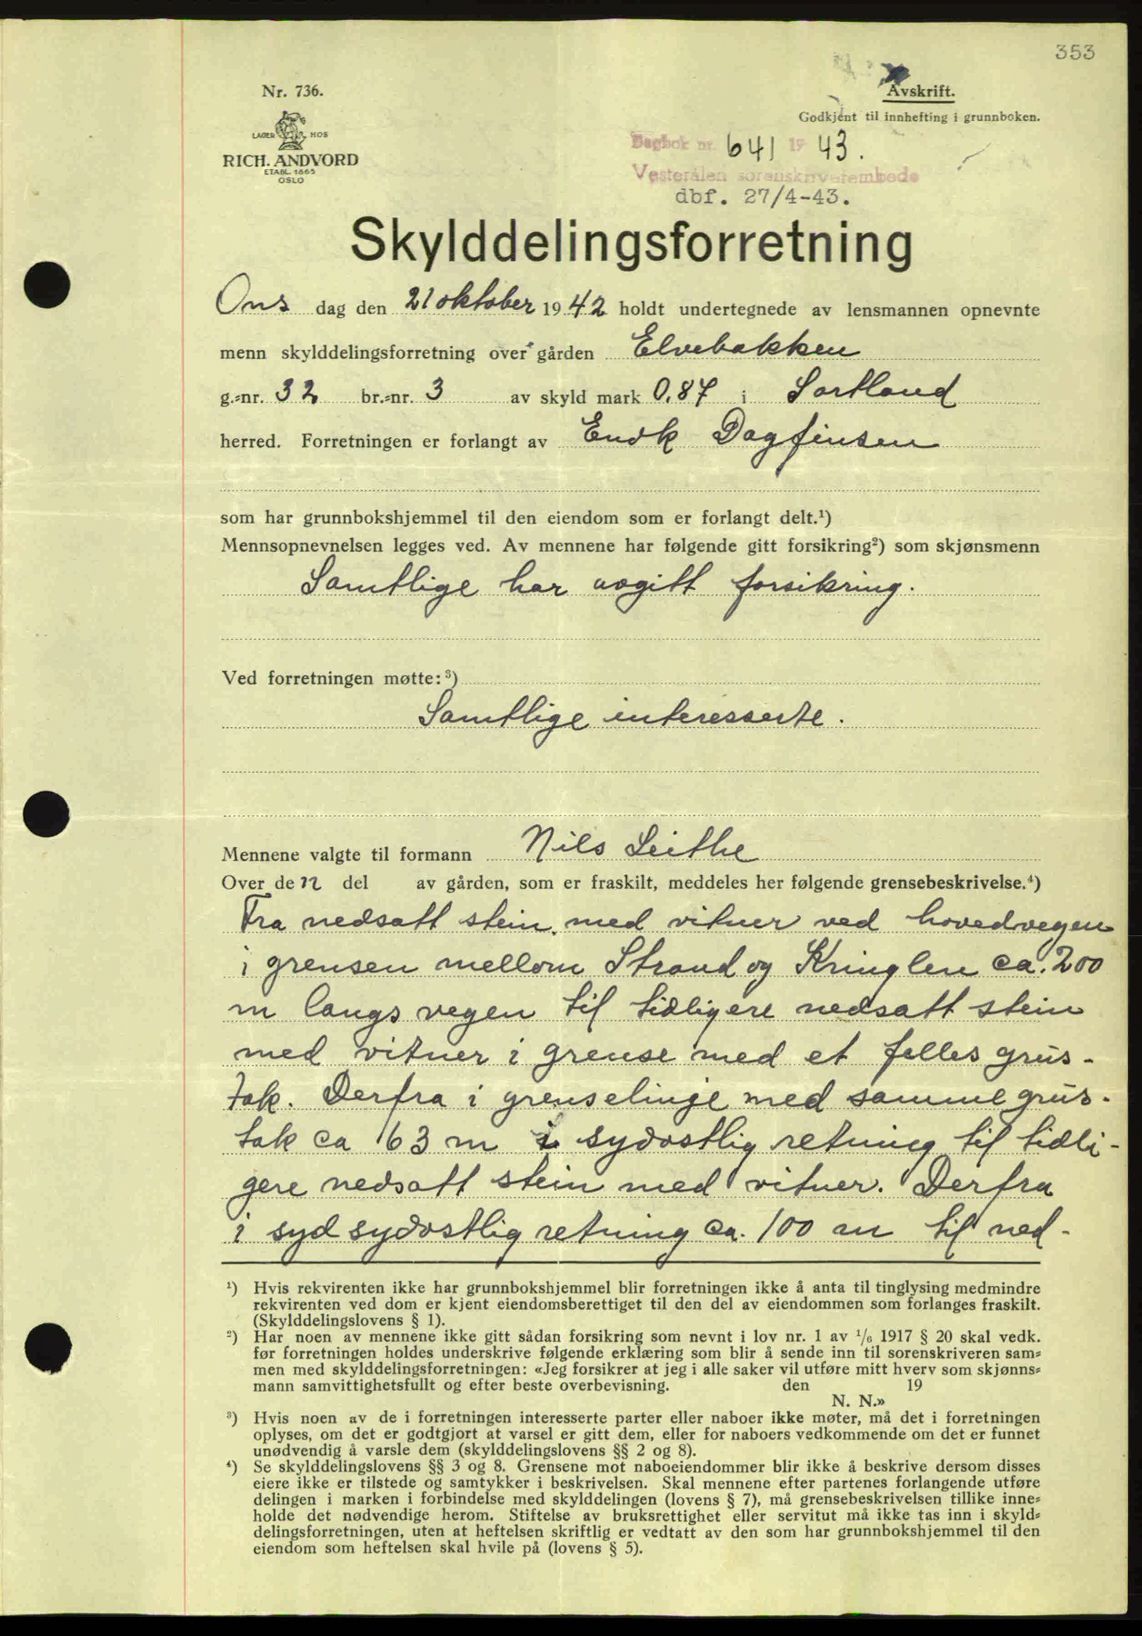 353
Nr. 736.
Avskrift.
Godkjent til innhefting i grunnboken.
LAGER HOS
RICH. ANDVORD
ETABL. 1865
OSLO
Dagbok nr. 641 1943.
Vesterålen sorenskriverembede
dbf. 27/4-43.
Skylddelingsforretning
Ons dag den 21 oktober 1942 holdt undertegnede av lensmannen opnevnte
menn skylddelingsforretning over gården Elvebakken
g.-nr. 32 br.-nr. 3 av skyld mark 0,87 i Sortland
herred. Forretningen er forlangt av Dagfinsen
som har grunnbokshjemmel til den eiendom som er forlangt delt.¹)
Mennsopnevnelsen legges ved. Av mennene har følgende gitt forsikring²) som skjønsmenn
Samtlige har avgitt forsikring.
Ved forretningen møtte:³)
Samtlige interesserte.
Mennene valgte til formann Nils Leithe
Over de n del av gården, som er fraskilt, meddeles her følgende grensebeskrivelse.⁴)
Fra nedsatt stein med vitner ved hovedvegen
i grensen mellom Strand og Kringlen ca. 200
m langs vegen til tidligere nedsatt stein
med vitner i grense med et felles grus-
tak. Derfra i grenselinje med samme grus-
tak ca 63 m i sydostlig retning til tidli-
gere nedsatt stein med vitner. Derfra
i syd sydostlig retning ca. 100 m til ned-
¹) Hvis rekvirenten ikke har grunnbokshjemmel blir forretningen ikke å anta til tinglysing medmindre
rekvirenten ved dom er kjent eiendomsberettiget til den del av eiendommen som forlanges fraskilt.
(Skylddelingslovens § 1).
²) Har noen av mennene ikke gitt sådan forsikring som nevnt i lov nr. 1 av 1/6 1917 § 20 skal vedk.
før forretningen holdes underskrive følgende erklæring som blir å sende inn til sorenskriveren sam-
men med skylddelingsforretningen: «Jeg forsikrer at jeg i alle saker vil utføre mitt hverv som skjønns-
mann samvittighetsfullt og efter beste overbevisning. den 19
N. N.»
³) Hvis noen av de i forretningen interesserte parter eller naboer ikke møter, må det i forretningen
oplyses, om det er godtgjort at varsel er gitt dem, eller for naboers vedkommende om det er funnet
unødvendig å varsle dem (skylddelingslovens §§ 2 og 8).
⁴) Se skylddelingslovens §§ 3 og 8. Grensene mot naboeiendommer blir ikke å beskrive dersom disses
eiere ikke er tilstede og samtykker i beskrivelsen. Skal mennene efter partenes forlangende utføre
delingen i marken i forbindelse med skylddelingen (lovens § 7), må grensebeskrivelsen tillike inne-
holde det nødvendige herom. Stiftelse av bruksrettighet eller servitut må ikke tas inn i skyld-
delingsforretningen, uten at heftelsen skriftlig er vedtatt av den som har grunnbokshjemmel til den
eiendom som heftelsen skal hvile på (lovens § 5).